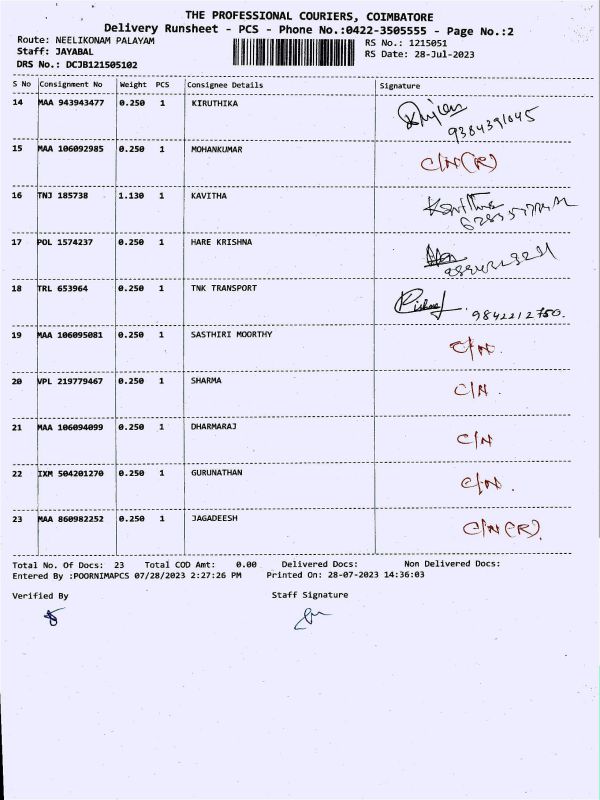 THE PROFESSIONAL COURIERS, COIMBATORE
Delivery Runsheet - PCS - Phone No.:0422-3505555 - Page No.:2
Route: NEELIKONAM PALAYAM RS No.: 1215051
Staff: JAYABAL RS Date: 28-Jul-2023
DRS No.: DCJB121505102
S No Consignment No Weight PCS Consignee Details Signature
14 MAA 943943477 0.250 1 KIRUTHIKA
9384391045
15 MAA 106092985 0.250 1 MOHANKUMAR C/N(R)
16 TNJ 185738 1.130 1 KAVITHA Kavitha
17 POL 1574237 0.250 1 HARE KRISHNA
18 TRL 653964 0.250 1 TNK TRANSPORT 9842212750.
19 MAA 106095081 0.250 1 SASTHIRI MOORTHY C/N.
20 VPL 219779467 0.250 1 SHARMA C/N.
21 MAA 106094099 0.250 1 DHARMARAJ C/N
22 IXM 504201270 0.250 1 GURUNATHAN C/N.
23 MAA 860982252 0.250 1 JAGADEESH C/N(R).
Total No. Of Docs: 23 Total COD Amt: 0.00 Delivered Docs: Non Delivered Docs:
Entered By :POORNIMAPCS 07/28/2023 2:27:26 PM Printed On: 28-07-2023 14:36:03
Verified By Staff Signature